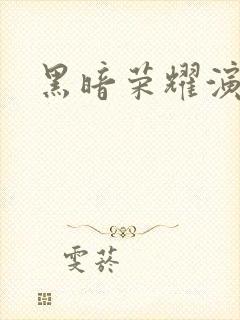 黑暗荣耀演
雯菥